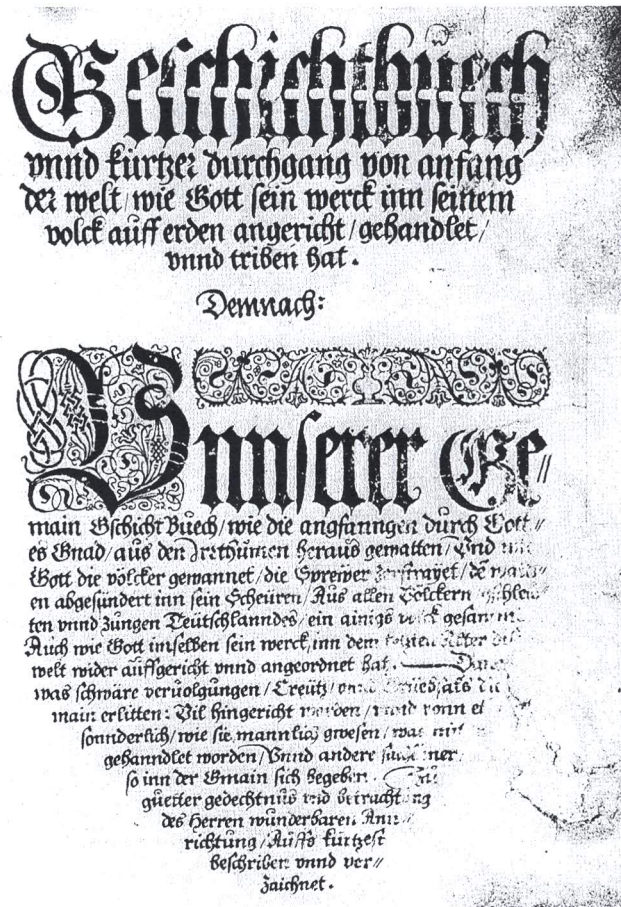 Geschichtbuech
vnnd kurtzer durchgang von anfang
der welt / wie Gott sein werck inn seinem
volck auff erden angericht / gehandlet /
vnnd triben hat .
Demnach:
Vnnserer Ge //
main Gschicht Buech / wie die angfanngen durch Gott //
es Gnad / aus den Irrthumen heraus gewatten / Vnd
Gott die völcker gewannet / die Sprewer
en abgesündert inn sein Scheuren / Aus allen Völckern
ten vnnd Zungen Teutschlanndes / ein ainigs volck
Auch wie Gott imselben sein werck, inn dem Alter
welt wider auffgericht vnnd angeordnet hat .
was schwäre veruolgungen / Creütz /
main erlitten: Vil hingericht worden /
sonnderlich / wie sie mannlich gwesen /
gehanndlet worden / Vnnd andere
so inn der Gmain sich begeben . Zu
guetter gedechtnus vnd betrachtung
des Herren wunderbaren Ann
richtung / Auffs kurtzest
beschriben vnnd ver //
zaichnet .